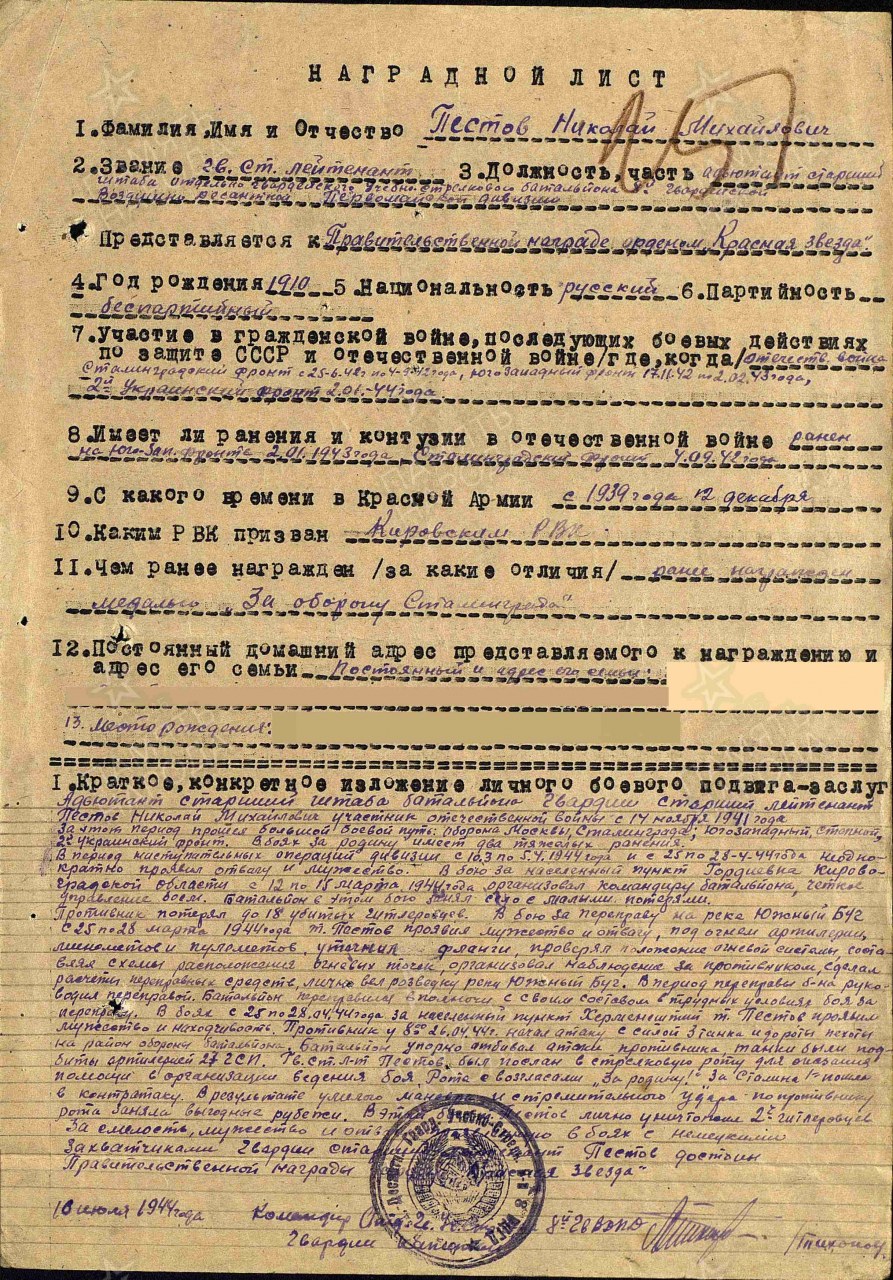 НАГРАДНОЙ ЛИСТ
1.Фамилия,Имя и Отчество Пестов Николай Михайлович
2.Звание гв. ст. лейтенант 3.Должность,часть адъютант старший
штаба отдельного гвардейского учебно-стрелкового батальона 8й гвардейской
Воздушно десантной Первомайской дивизии
Представляется к Правительственной награде орденом "Красная звезда".
4.Год рождения 1910 5.Национальность русский 6.Партийность
беспартийный
7.Участие в гражденской войне,последующих боевых действиях
по защите СССР и отечественной войне/где,когда/ отечеств. война
Сталинградский фронт с 25-6-42г по 4-9-42 года, югозападный фронт 17.11.42 по 2.02.43 года,
2й Украинский фронт 2.01-44 года
8.Имеет ли ранения и контузии в отечественной войне ранен
на Юго-Зап. фронте 2.01.1943 года Сталинградский фронт 4.09.42 года
9.С какого времени в Красной Армии с 1939 года 12 декабря
10.Каким РВК призван Кировским РВК.
11.Чем ранее награжден /за какие отличия/ ранее награжден
медалью "За оборону Сталинграда"
12.Постоянный домашний адрес представляемого к награждению и
адрес его семьи Постоянный и адрес его семьи:
13. место рождения:
I.Краткое,конкретное изложение личного боевого подвига-заслуг
Адъютант старший штаба батальона гвардии старший лейтенант
Пестов Николай Михайлович участник отечественной войны с 14 ноября 1941 года
За этот период прошел большой боевой путь: оборона Москвы, Сталинграда; Югозападный, степной,
2й Украинский фронт. В боях за родину имеет два тяжелых ранения.
В период наступательных операций дивизии с 10.3 по 5.4.1944 года и с 25 по 28-4-44 года неодно-
кратно проявил отвагу и мужество. В бою за населенный пункт Гордиевка Кирово-
градской области с 12 по 15 марта 1944 года организовал командиру батальона, четкое
управление боем. Батальон в этом бою занял село с малыми потерями.
Противник потерял до 18 убитых гитлеровцев. В бою за переправу на реке Южный Буг
с 25 по 28 марта 1944 года т. Пестов проявил мужество и отвагу, под огнем артилерии
минометов и пулеметов, уточнил фланги, проверял положение огневой системы, соста-
вляя схемы расположения огневых точек, организовал наблюдение за противником, сделал
расчеты переправных средств, лично вел розведку реки Южный Буг. В период переправы б-на руко-
водил переправой. Батальон переправился в полночи с своим составом в трудных условиях боя за
переправу. В боях с 25 по 28.04.44 года за населенный пункт Херменештий т. Пестов проявил
мужество и находчивость. Противник у 8:00 26.04.44г. начал атаку с силой 3 танка и до роты пехоты
на район обороны батальона. Батальон упорно отбивал атаки противника танки были под-
биты артилерией 27 гСП. Гв. Ст. Л-т Пестов был послан в стрелковую роту для оказания
помощи в организации ведения боя, Рота с возгласами "За родину!" За Сталина!" пошла
в контратаку. В результате умелого маневра и стремительного удара по противнику
рота заняла выгодные рубежи. В этом бою Пестов лично уничтожил 2х гитлеровцев
За смелость, мужество и отв в боях с немецкими
Захватчиками гвардии старший Пестов достоин
Правительственной награды Красная Звезда"
10 июля 1944 года Командир 8й гв ВДПД
Гвардии